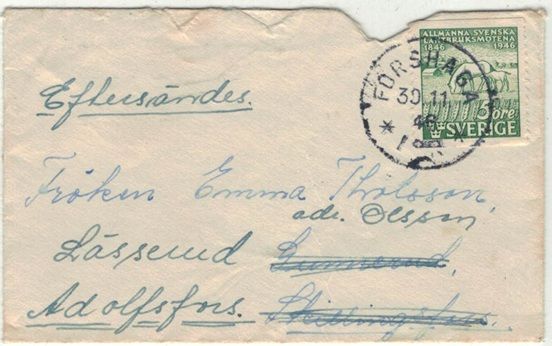 ALLMÄNNA SVENSKA
LANTBRUKSMÖTENA
1846 1946
FORSHAGA
30.11
46
5 öre
SVERIGE
Eftersändes.
Fröken Emma Tholsson
adr. Olsson,
Lässerud
Adolfsfors.